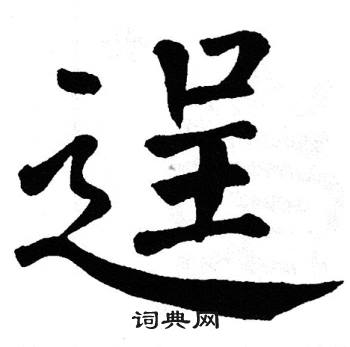 逞
词典网